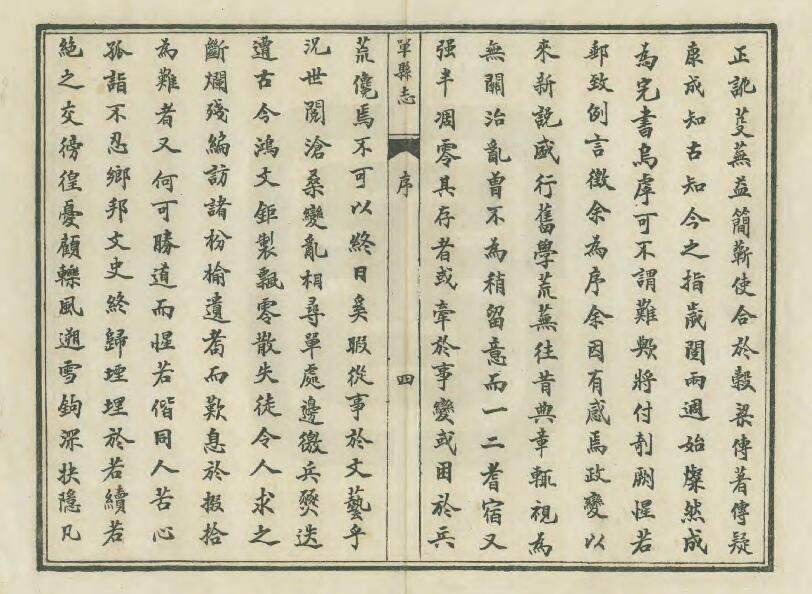 正訛芟蕪益簡蘄使合於穀梁傳著傳疑
康成知古知今之指歲閏兩週始燦然成
為完書烏虖可不謂難歟將付剞劂惺若
郵致例言徵余為序余因有感焉政變以
來新說盛行舊學荒蕪往昔典章輒視為
無關治亂曾不為稍留意而一二耆宿又
强半凋零其存者或牽於事變或困於兵
單縣志
序
四
荒儳焉不可以終日奚暇從事於文藝乎
況世閱滄桑變亂相尋單處邊徼兵燹迭
遭古今鴻文鉅製飄零散失徒令人求之
斷爛殘編訪諸枌榆遺耈而歎息於掇拾
為難者又何可勝道而惺若偕同人苦心
孤詣不忍鄉邦文史終歸堙埋於若續若
絕之交徬徨憂顧轢風遡雪鉤深抉隱凡